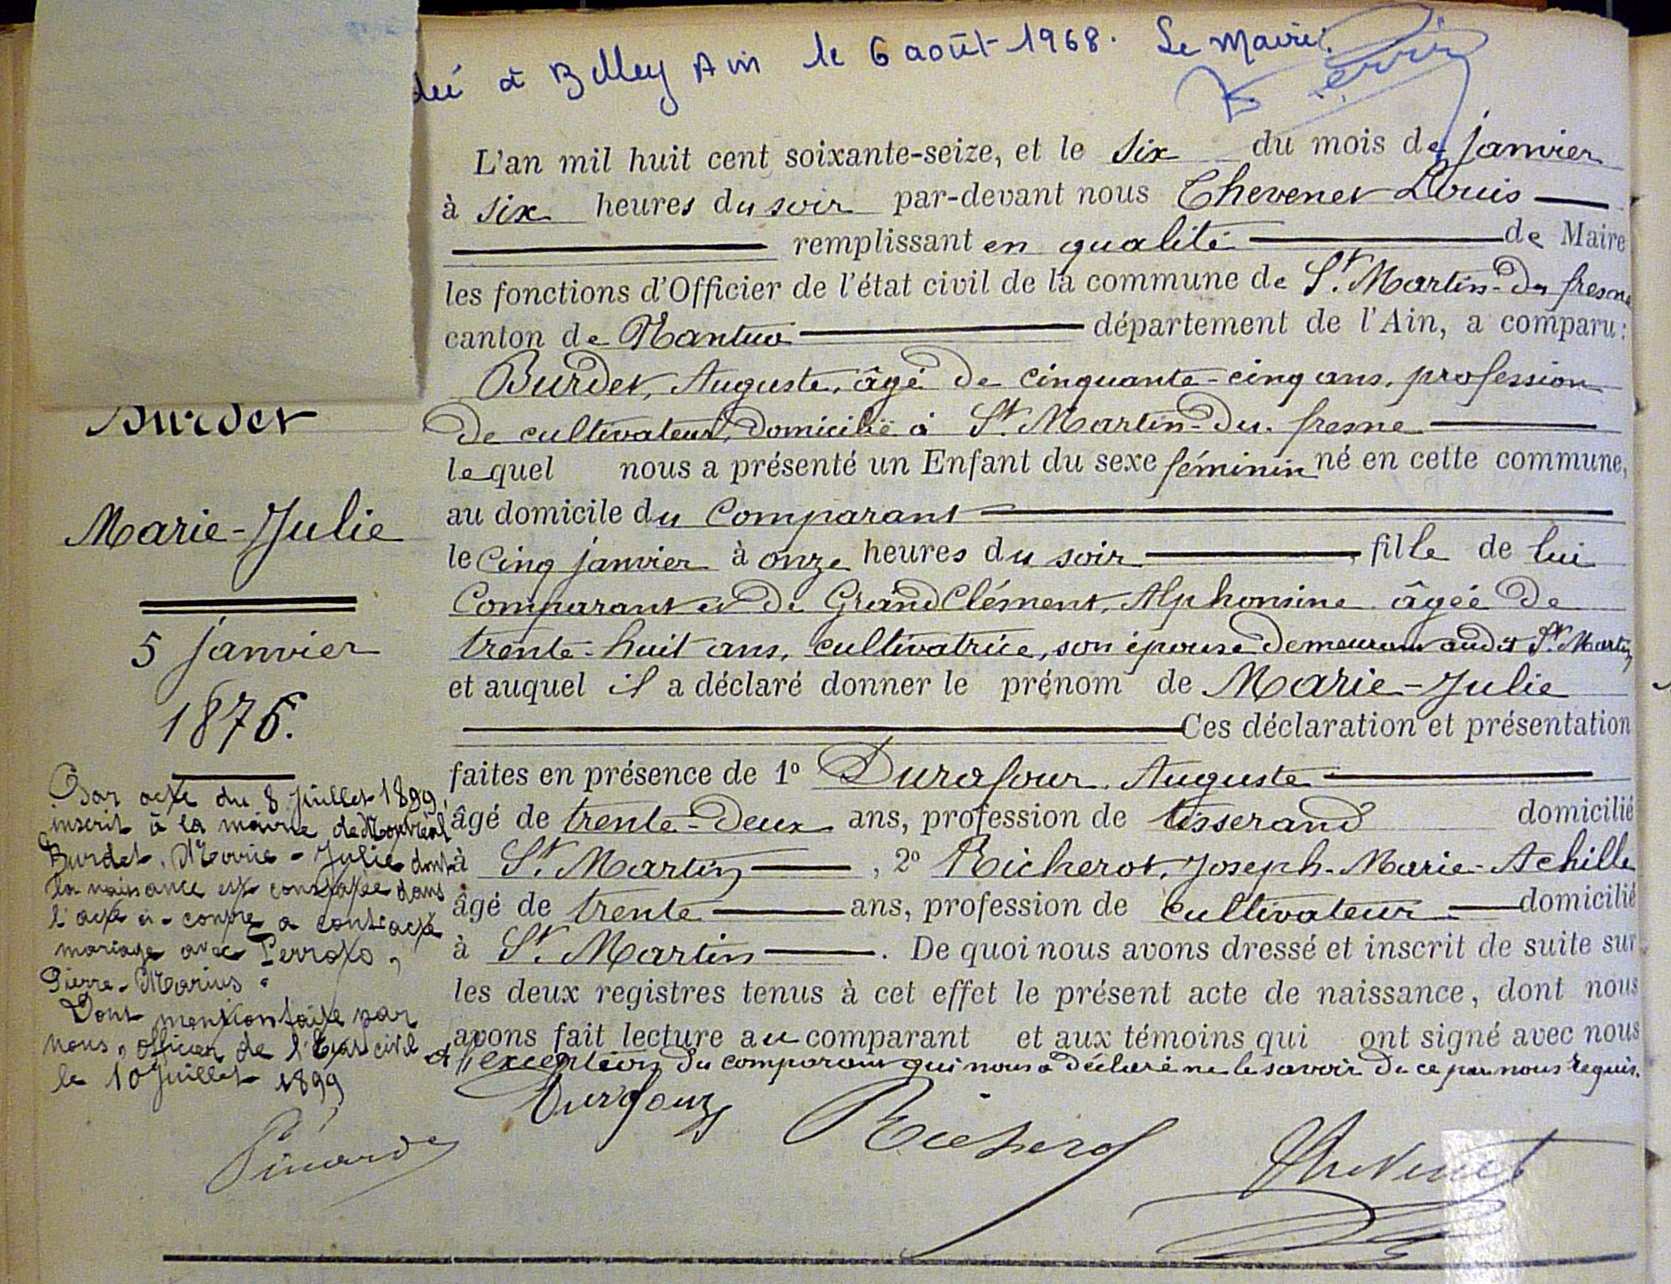 à Belley Ain le 6 août 1968. Le Maire
L'an mil huit cent soixante-seize, et le six du mois de janvier
à six heures du soir par-devant nous Chevenet Louis
remplissant en qualité de Maire
les fonctions d'Officier de l'état civil de la commune de St. Martin-du fresne
canton de Nantua département de l'Ain, a comparu :
Burdet, Auguste, âgé de cinquante-cinq ans, profession
de cultivateur, domicilié à St. Martin-du-fresne
lequel nous a présenté un Enfant du sexe féminin né en cette commune,
au domicile du Comparant
le Cinq janvier à onze heures du soir, fille de lui
Comparant et de GrandClément, Alphonsine âgée de
trente-huit ans, cultivatrice, son épouse demeurant audit St. Martin
et auquel il a déclaré donner le prénom de Marie-Julie
Ces déclaration et présentation
faites en présence de 1º Durafour, Auguste
âgé de trente-deux ans, profession de tisserand domicilié
à St. Martin, 2º Richerot, Joseph-Marie-Achille
âgé de trente ans, profession de cultivateur domicilié
à St. Martin. De quoi nous avons dressé et inscrit de suite sur
les deux registres tenus à cet effet le présent acte de naissance, dont nous
avons fait lecture au comparant et aux témoins qui ont signé avec nous
à l'exception du comparant qui nous a déclaré ne le savoir de ce par nous requis.
Durafour
Richerot
Chevenet
Burdet
Marie-Julie
5 janvier
1876.
Par acte du 8 juillet 1899,
inscrit à la mairie de Montréal,
Burdet, Marie-Julie dont
la naissance est constatée dans
l'acte ci-contre a contracté
mariage avec Perrozo,
Pierre-Marius.
Dont mention faite par
nous, officier de l'Etat civil
le 10 juillet 1899
Pinard